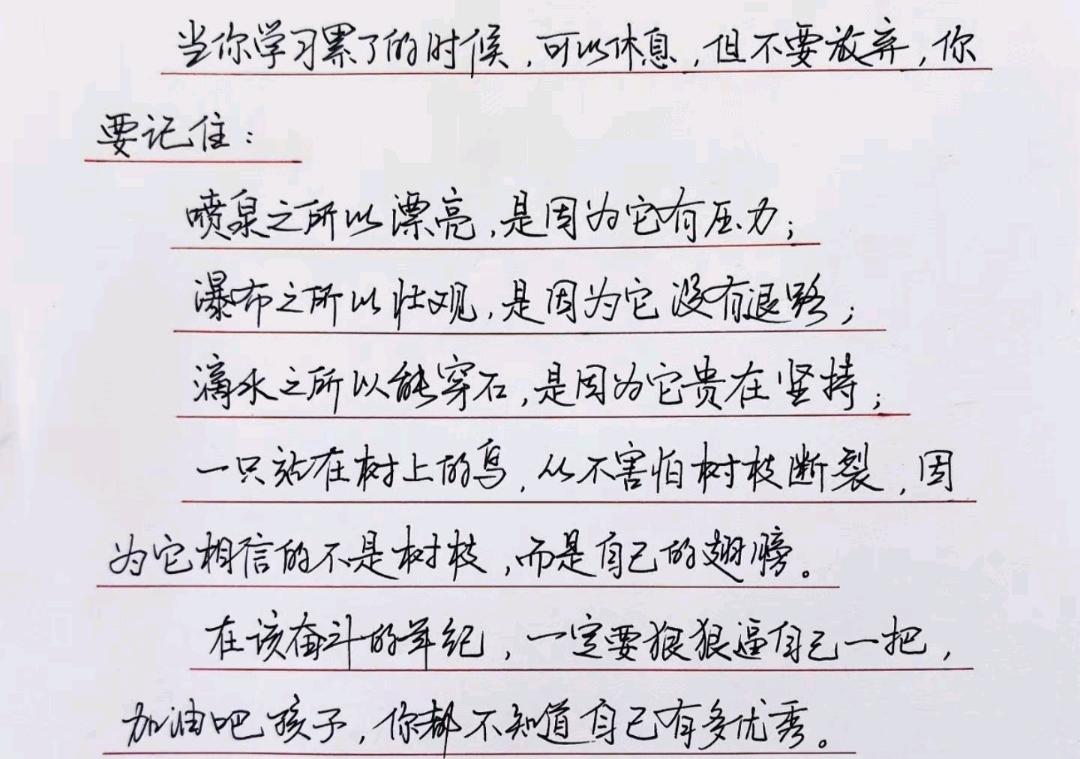 当你学习累了的时候，可以休息，但不要放弃，你
要记住：
喷泉之所以漂亮，是因为它有压力；
瀑布之所以壮观，是因为它没有退路；
滴水之所以能穿石，是因为它贵在坚持；
一只站在树上的鸟，从不害怕树枝断裂，因
为它相信的不是树枝，而是自己的翅膀。
在该奋斗的年纪，一定要狠狠逼自己一把，
加油吧孩子，你都不知道自己有多优秀。